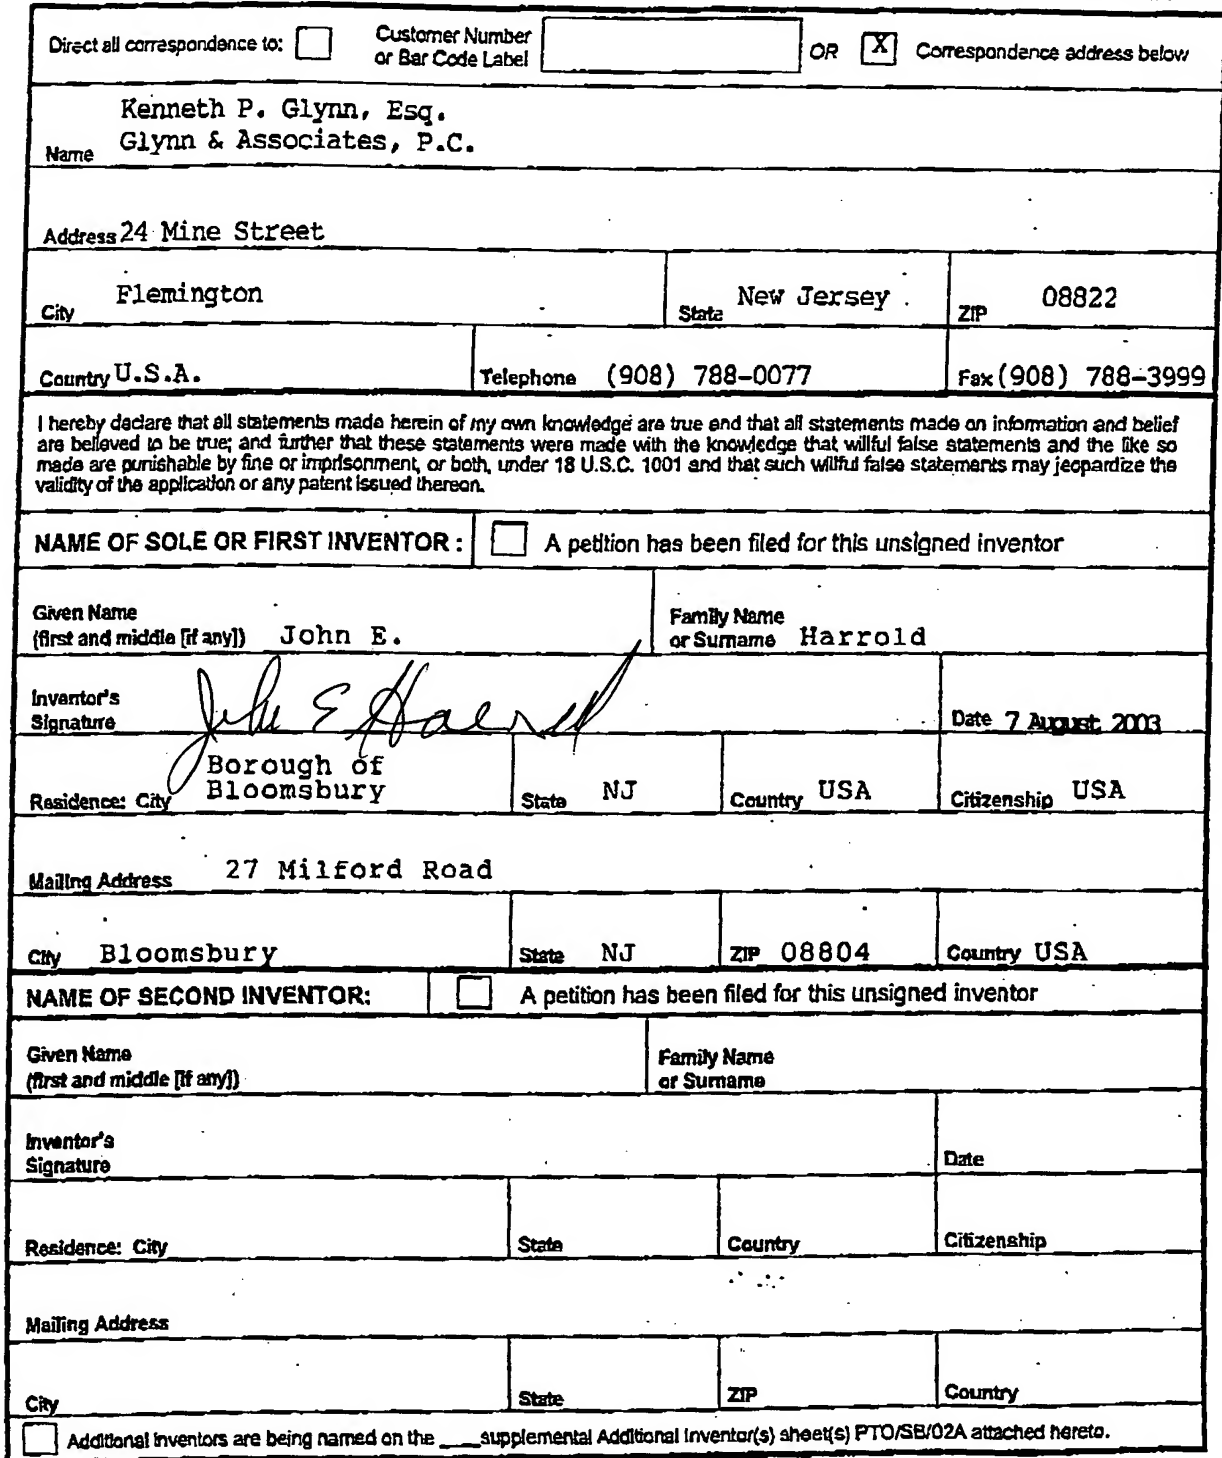 Direct all correspondence to: Customer Number or Bar Code Label OR X Correspondence address below
Kenneth P. Glynn, Esq.
Name Glynn & Associates, P.C.
Address 24 Mine Street
City Flemington State New Jersey ZIP 08822
Country U.S.A. Telephone (908) 788-0077 Fax (908) 788-3999
I hereby declare that all statements made herein of my own knowledge are true and that all statements made on information and belief
are believed to be true; and further that these statements were made with the knowledge that willful false statements and the like so
made are punishable by fine or imprisonment, or both, under 18 U.S.C. 1001 and that such willful false statements may jeopardize the
validity of the application or any patent issued thereon.
NAME OF SOLE OR FIRST INVENTOR : A petition has been filed for this unsigned inventor
Given Name
(first and middle [if any]) John E.
Family Name
or Surname Harrold
Inventor's
Signature John E Harrold
Date 7 August 2003
Residence: City Borough of
Bloomsbury
State NJ Country USA Citizenship USA
Mailing Address 27 Milford Road
City Bloomsbury State NJ ZIP 08804 Country USA
NAME OF SECOND INVENTOR: A petition has been filed for this unsigned inventor
Given Name
(first and middle [if any])
Family Name
or Surname
Inventor's
Signature
Date
Residence: City State Country Citizenship
Mailing Address
City State ZIP Country
Additional inventors are being named on the ___supplemental Additional Inventor(s) sheet(s) PTO/SB/02A attached hereto.